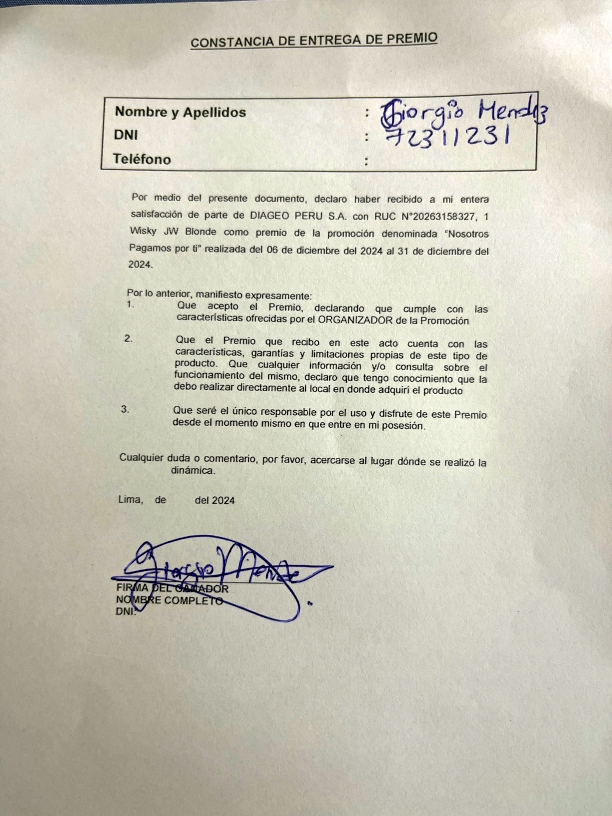 CONSTANCIA DE ENTREGA DE PREMIO
Nombre y Apellidos : Giorgio Mendez
DNI : 72311231
Teléfono :
Por medio del presente documento, declaro haber recibido a mi entera
satisfacción de parte de DIAGEO PERU S.A. con RUC N°20263158327, 1
Wisky JW Blonde como premio de la promoción denominada "Nosotros
Pagamos por ti" realizada del 06 de diciembre del 2024 al 31 de diciembre del
2024.
Por lo anterior, manifiesto expresamente:
1. Que acepto el Premio, declarando que cumple con las
características ofrecidas por el ORGANIZADOR de la Promoción
2. Que el Premio que recibo en este acto cuenta con las
características, garantías y limitaciones propias de este tipo de
producto. Que cualquier información y/o consulta sobre el
funcionamiento del mismo, declaro que tengo conocimiento que la
debo realizar directamente al local en donde adquirí el producto
3. Que seré el único responsable por el uso y disfrute de este Premio
desde el momento mismo en que entre en mi posesión.
Cualquier duda o comentario, por favor, acercarse al lugar dónde se realizó la
dinámica.
Lima, de del 2024
Giorgio Mendez
FIRMA DEL GANADOR
NOMBRE COMPLETO
DNI: